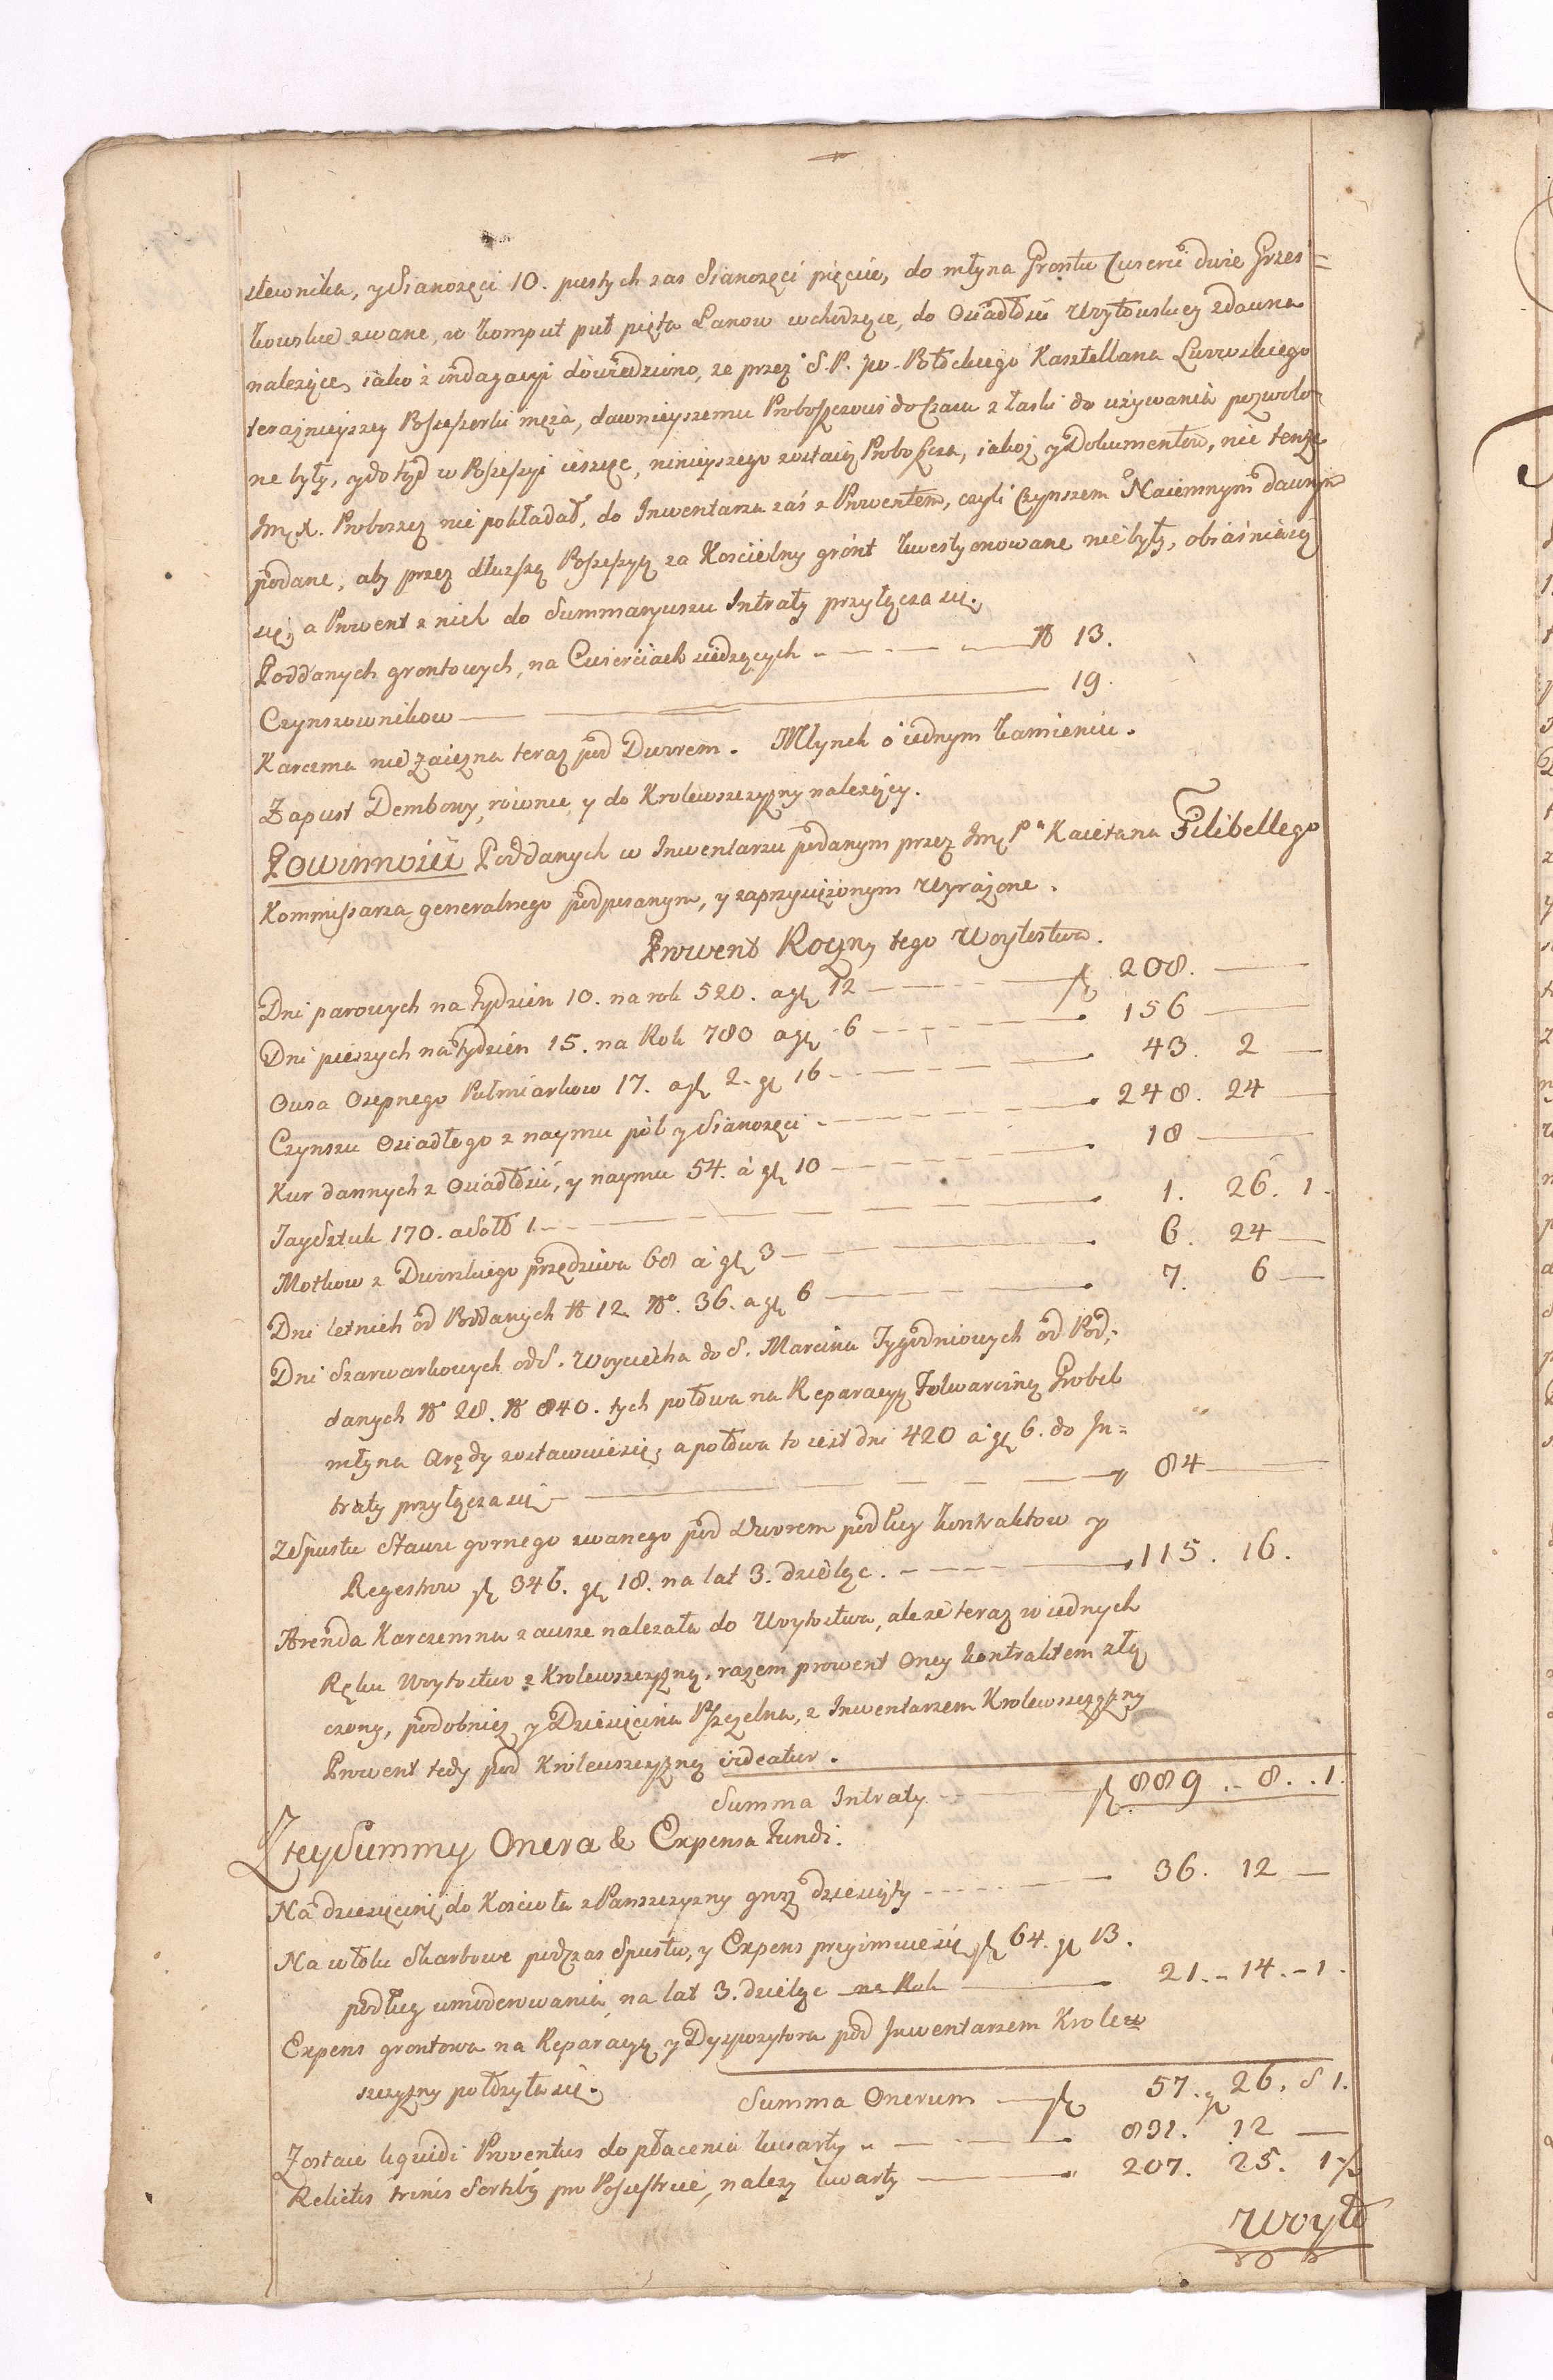 stewnika, y Sianozęci 10. pustych zas Sianozęci pięcie, do młyna Grontu Cwierci dwie Grzes=
kowskie zwane, w komput puł pięta Lanow wchodzące, do Osiadłości Woytowskiey zdawna
nalezące, iako z indagacyi dowiedziono, ze przez S. P. po-Potockiego Kasztellana Lwowskiego
teraznieyszey Possessorki męza, dawnieyszemu Proboszczowi do Czasu z łaski do uzywania pozwolo=
ne były, y do tąd w Possessyi ieszcze, ninieyszego zostaią Proboszcza, iakoż y Dokumentow, nie tenze
Jmc X. Proboszcz nie pokładał, do Inwentarza zaś z Prowentem, czyli Czynszem Naiemnym dawnym
podane, aby przez dłuzszą Possessyą za Koscielny grónt kwestyonowane nie były, obiaśniaią
się, a Prowent z nich do Summaryuszu Intraty przyłącza się.
Poddanych grontowych, na Cwierciach siedzących No 13.
Czynszownikow 19.
Karczma nie zaiezna teraz pod Dworem. Młynek o iednym kamieniu.
Zapust Dembowy, równie y do Krolewszczyzny nalezący.
Powinności Poddanych w Inwentarzu podanym przez Jmc Pa Kaietana Filibellego
Kommissarza generalnego podpisanym, y zaprzysięzonym wyrażone.
Prowent Roczny tego Woytostwa.
Dni parowych na tydzien 10. na rok 520. a gr 12 fl 208.
Dni pieszych na tydzien 15. na Rok 780 a gr 6 156
Owsa Osepnego Pułmiarkow 17. a fl 2. gr 16 43. 2
Czynszu Osiadłego z naymu pól y Sianozęci 248. 24
Kur dannych z Osiadłości, y naymu 54. á gr 10 18
Jay Sztuk 170. a Sołd 1 1. 26. 1.
Motkow z Dworskiego przędziwa 68 á gr 3 6. 24
Dni letnich od Poddanych No 12. No. 36. a gr 6 7. 6
Dni Szarwarkowych od S. Woyciecha do S. Marcina Tygodniowych od Pod,,
danych No 28. No 840. tych połowa na Reparacyą Folwarczną Grobel
młyna Arędy zostawuie się, a połowa to iest dni 420 á gr 6. do In=
traty przyłącza się 84
Z Spustu Stawu gornego zwanego pod Dworem podług kontraktow y
Regestrow fl 346. gr 18. na lat 3. dzieląc. 115. 16.
Arenda Karczemna zawsze nalezała do Woytostwa, ale ze teraz w iednych
Ręku Woytostwo z Krolewszczyzną, razem prowent Oney kontraktem złą
czony, podobniez y Dziesięcina Pszczelna, z Inwentarzem Krolewszczyzny
Prowent tedy pod Krolewszczyzną videatur.
Summa Intraty fl 889. 8. 1.
Z tey Summy Onera & Expensa fundi.
Na dziesięcinę do Koscioła z Panszczyzny grosz dziesiąty 36. 12
Na wtoku Skarbowe podczas Spustu, y Expens przyimuie się fl 64. gr 13.
podług umoderowania, na lat 3. dzieląc na Rok 21. 14. 1.
Expens grontowa na Reparacyą y Dyspozytora pod Inwentarzem Krolew
szczyzny położyła się.
Summa Onerum fl 57. gr 26. S 1.
Zostaie liquidi Proventus do płacenia kwarty 831. 12
Relictis trinis Sortibg pro Possessore, nalezy kwarty 207. 25. 1 ½
Woyto